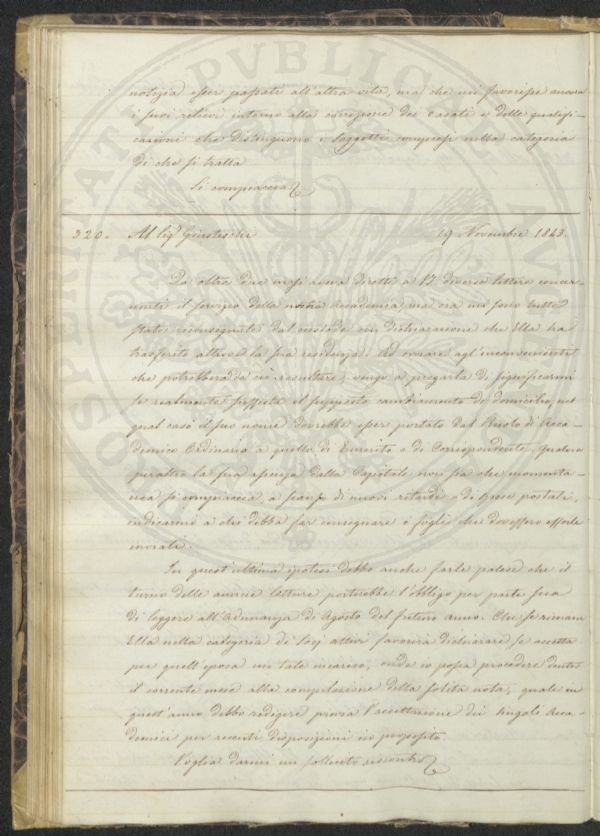 notizia esser passati all'altra vita, ma che mi favorisse ancora
i suoi rilievi intorno alla correzione dei Casati e delle qualifi-
cazioni che distinguono i Soggetti compresi nella categoria
di che si tratta
Si compiaccia
320. Al Sigr 19 Novembre 1843.
Da oltre due mesi aveva diretto a 17 diverse lettere concer-
nenti il servizio della nostra Accademia, ma ora mi sono tutte
state riconsegnate dal custode con dichiarazione che Ella ha
trasferito altrove la sua residenza. Ad ovviare agl'inconvenienti
che potrebbero da ciò resultare, vengo a pregarla di significarmi
se realmente sussista il supposto cambiamento di domicilio, nel
qual caso il suo nome dovrebbe esser portato dal Ruolo di Acca-
demico Ordinario a quello di Emerito o di Corrispondente. Qualora
peraltro la sua assenza dalla Capitale non sia che momenta-
nea si compiaccia, a scanso di nuovi ritardi e di spese postali,
indicarmi a chi debba far consegnare i fogli che dovessero esserle
inviati.
In quest'ultima ipotesi debbo anche farle palese che il
turno delle annue letture porterebbe l'obbligo per parte sua
di leggere all'Adunanza di Agosto del futuro anno. Che se rimane
Ella nella categoria di Socj attivi favorirà dichiarare se accetta
per quell'epoca un tale incarico, onde io possa procedere dentro
il corrente mese alla compilazione della solita nota, quale in
quest'anno debbo redigere previa l'accettazione dei singoli Acca-
demici per recenti disposizioni in proposito.
Voglia darmi un sollecito riscontro